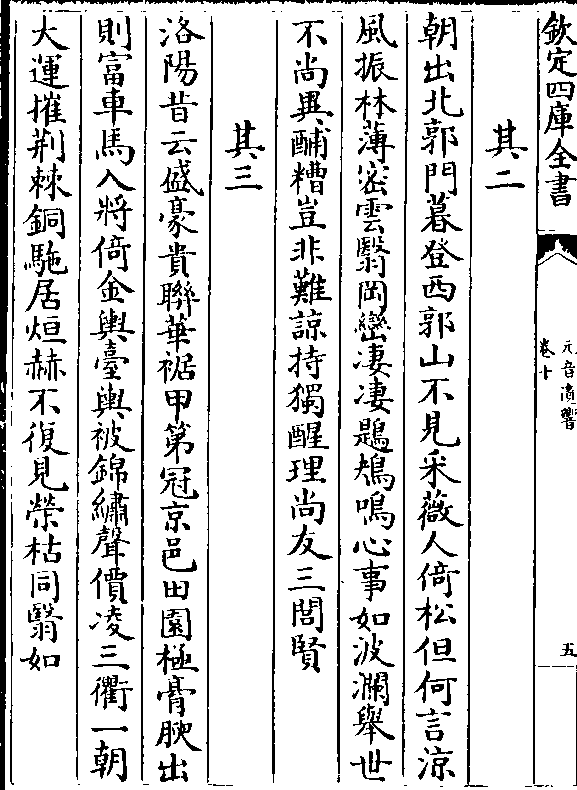 欽定四庫全書
元音遺響
卷十
五
其二
朝出北郭門暮登西郭山不見采薇人倚松但何言涼
風振林薄密雲翳岡巒凄凄鶗鴂鳴心事如波瀾舉世
不尚異酺糟豈非難諒持獨醒理尚友三閭賢
其三
洛陽昔云盛豪貴聯華裾甲第冠京邑田園極膏腴出
則富車馬入將倚金輿臺輿被錦繡聲價凌三衢一朝
大運摧荆棘銅駞居烜赫不復見榮枯同翳如